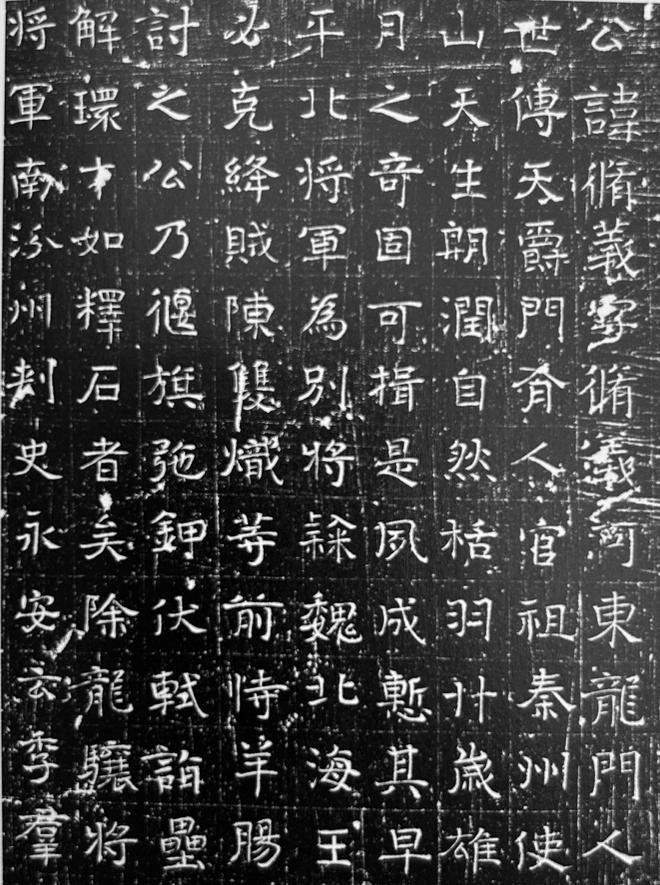 公諱脩義字脩義河東龍門人
世傳天爵門有人官祖秦州使
山天生朗潤自然栝羽廿歲雄
月之奇固可揖是夙成慙其早
平北將軍為別將隸魏北海王
必克絳賊陳雙熾等前恃羊腸
討之公乃偃旗弛鉀伏軾詣壘
解環才如釋石者矣除龍驤將
將軍南汾州刺史永安云季羣